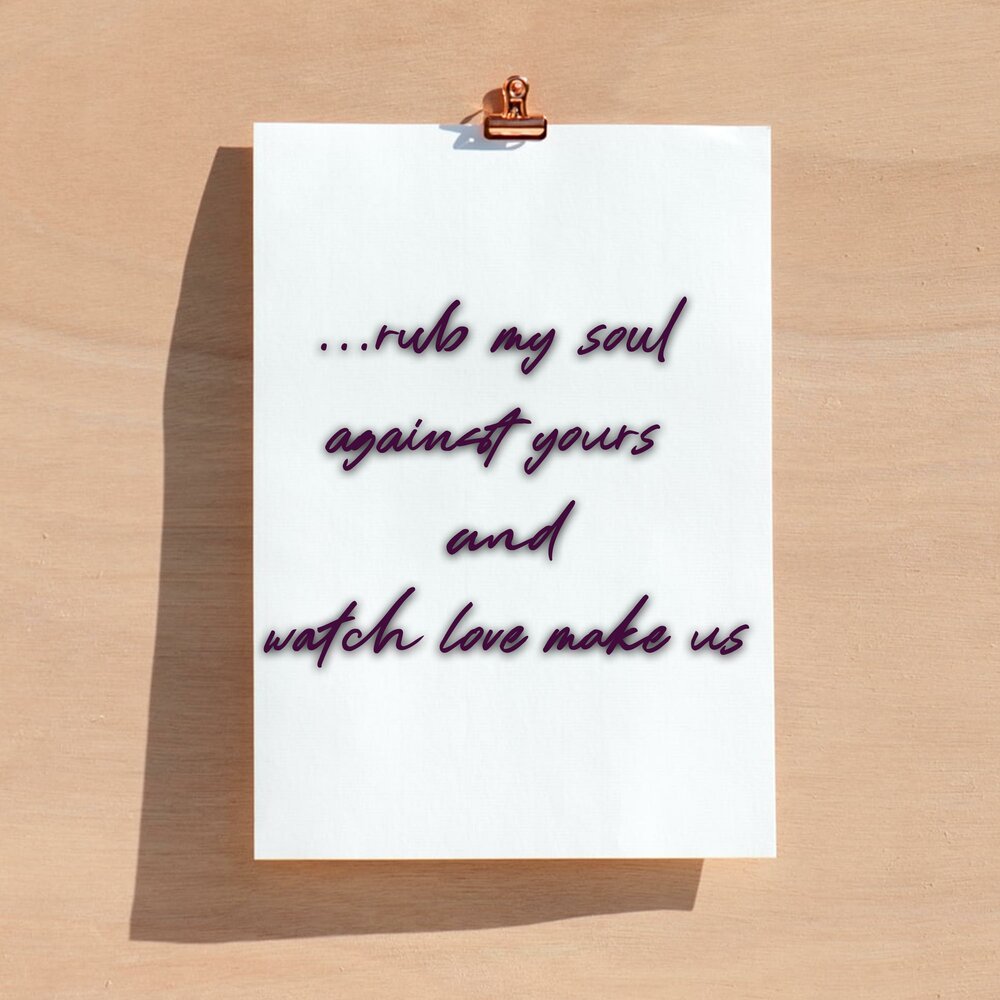 ...rub my soul
against yours
and
watch love make us